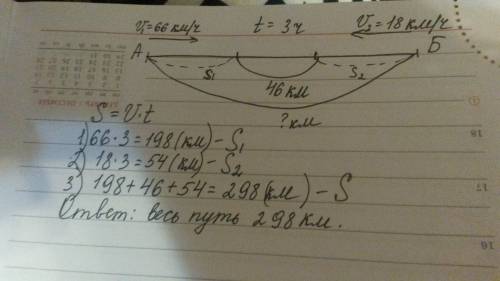 V₁=66 км/ч t = 3 ч V₂=18 км/ч
А Б
S₁ S₂
46 км
? км
S = V·t
1) 66·3=198 (км) – S₁
2) 18·3=54 (км) – S₂
3) 198+46+54=298 (км) – S
Ответ: весь путь 298 км.
18
17
16